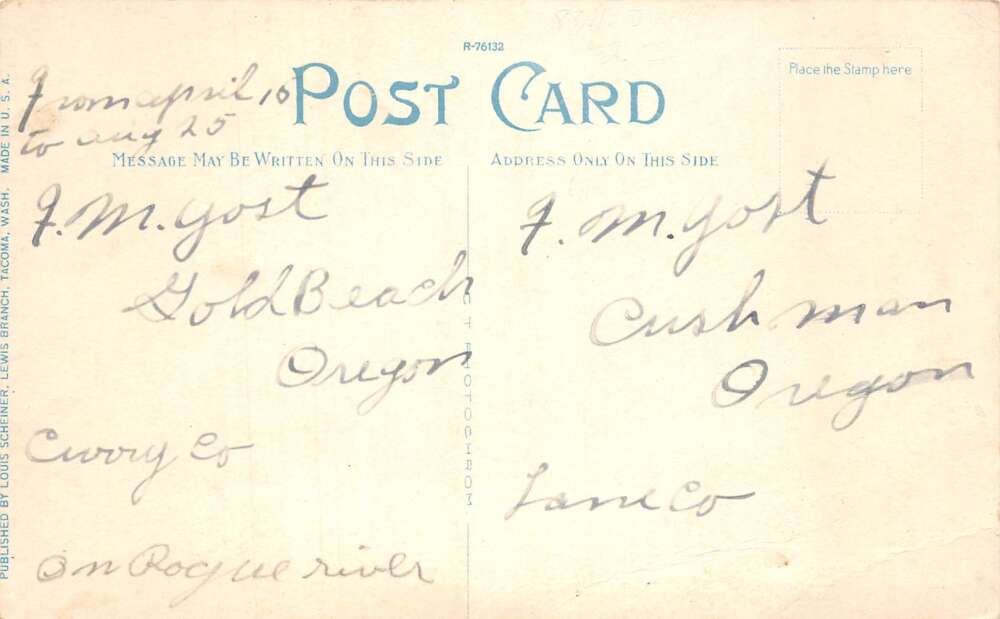 R-76132
POST CARD
Place the Stamp here
MESSAGE MAY BE WRITTEN ON THIS SIDE
ADDRESS ONLY ON THIS SIDE
From april 10
to aug 25
J. M. Yost
Gold Beach
Oregon
Curry Co
On Rogue river
J. M. Yost
Cushman
Oregon
Lane Co
PUBLISHED BY LOUIS SCHEINER, LEWIS BRANCH, TACOMA, WASH. MADE IN U. S. A.
C T PHOTOCHROM